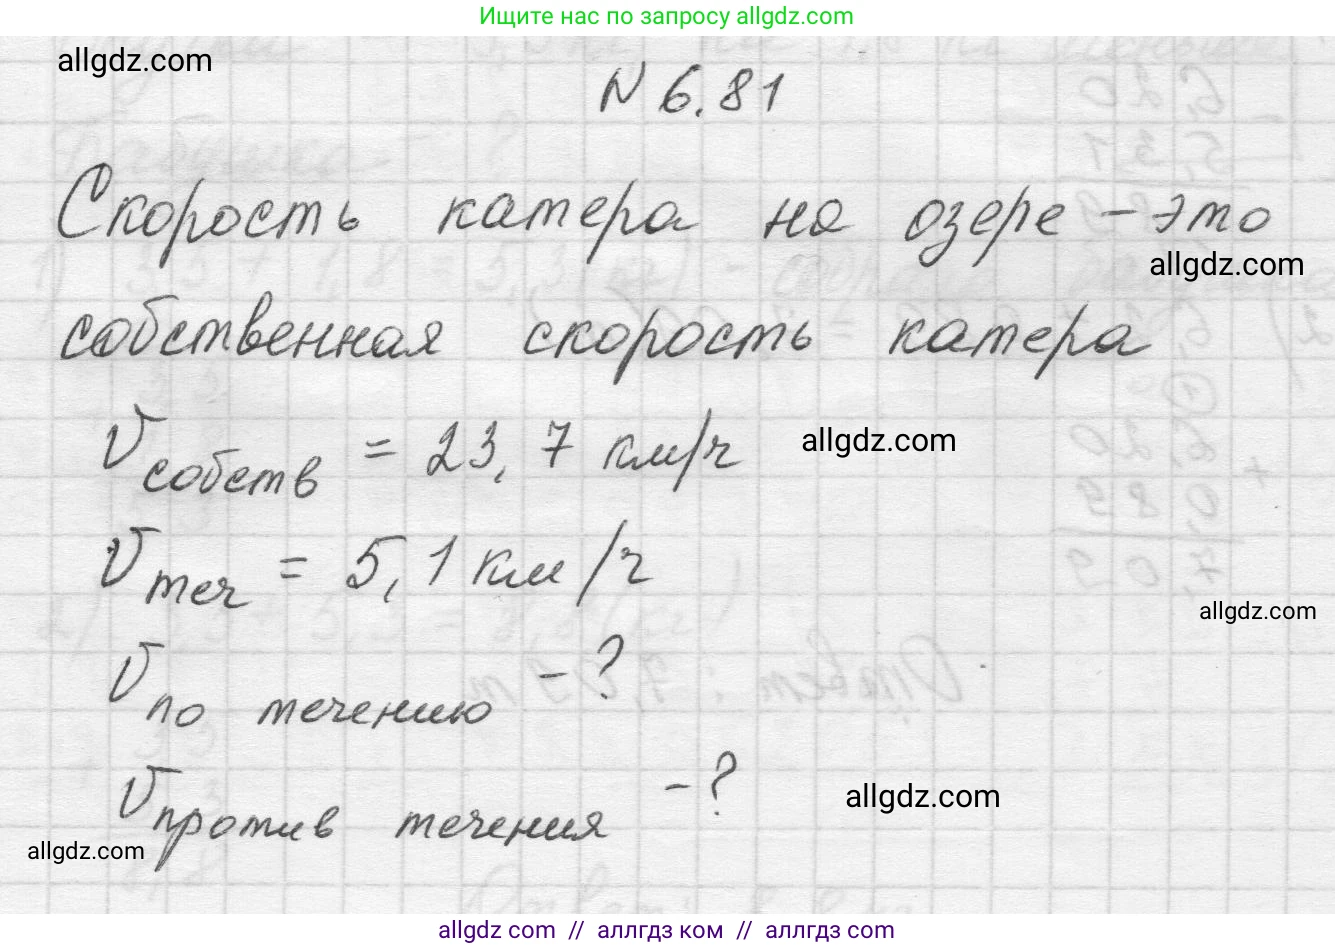 Ищите нас по запросу allgdz.com
allgdz.com
N 6.81
Скорость катера на озере - это
allgdz.com
собственная скорость катера
V собств = 23,7 км/ч
allgdz.com
V теч = 5,1 км/ч
allgdz.com
V по течению - ?
V против течения - ?
allgdz.com
allgdz.com
allgdz com // аллгдз ком // аллгдз com